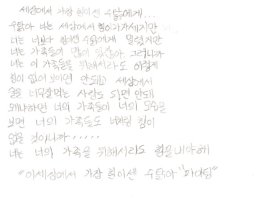 세상에서 가장 힘이센 수탉에게...
수탉아 너는 세상에서 힘이 가장세지만
너는 너보다 힘이센 수탉에게 졌겠지만
너는 가족들이 많이 있잖아 그러니까
너는 이 가족들을 위해서라도 이렇게
힘이 없이 보이면 안되고 세상에서
술을 너무많이먹는 사람도 되면 안돼
왜냐하면 너의 가족들이 너의 모습을
보면 너의 가족들도 너처럼 힘이
없을 것이니까......
너는 너의 가족을 위해서라도 힘을내야해
"이세상에서 가장 힘이센 수탉아"